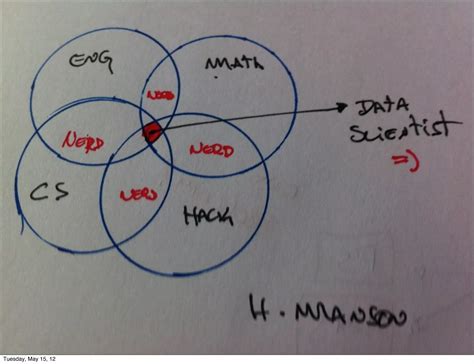 ENG
MATH
NERD
NERD
NERD
CS
NERD
HACK
DATA
SCIENTIST
=)
H. MANSON
Tuesday, May 15, 12